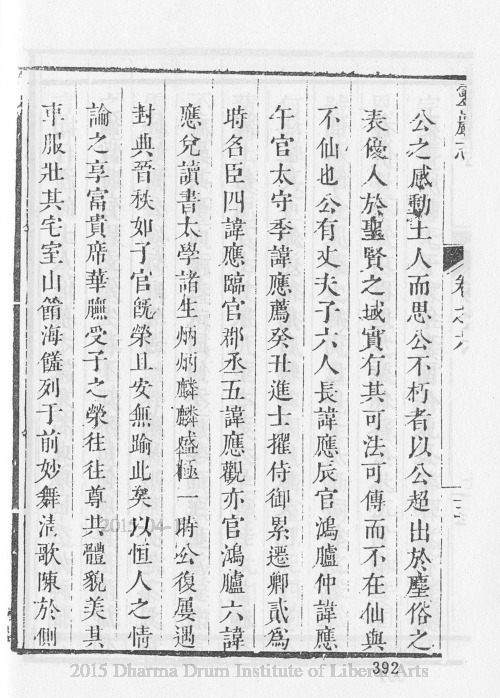 公之感動土人而思公不朽者以公超出於塵俗之
表優人於聖賢之域實有其可法可傳而不在仙與
不仙也公有丈夫子六人長諱應辰官鴻臚仲諱應
午官太守季諱應薦癸丑進士擢侍御累遷卿貳為
時名臣四諱應臨官郡丞五諱應觀亦官鴻臚六諱
應兌讀書太學諸生炳炳麟麟盛極一時公復屢遇
封典晉秩如子官旣榮且安無踰此矣以恒人之情
論之享富貴席華膴受子之榮往往尊其體貌美其
車服壯其宅室山餚海饈列于前妙舞清歌陳於側
392
2015 Dharma Drum Institute of Liberal Arts